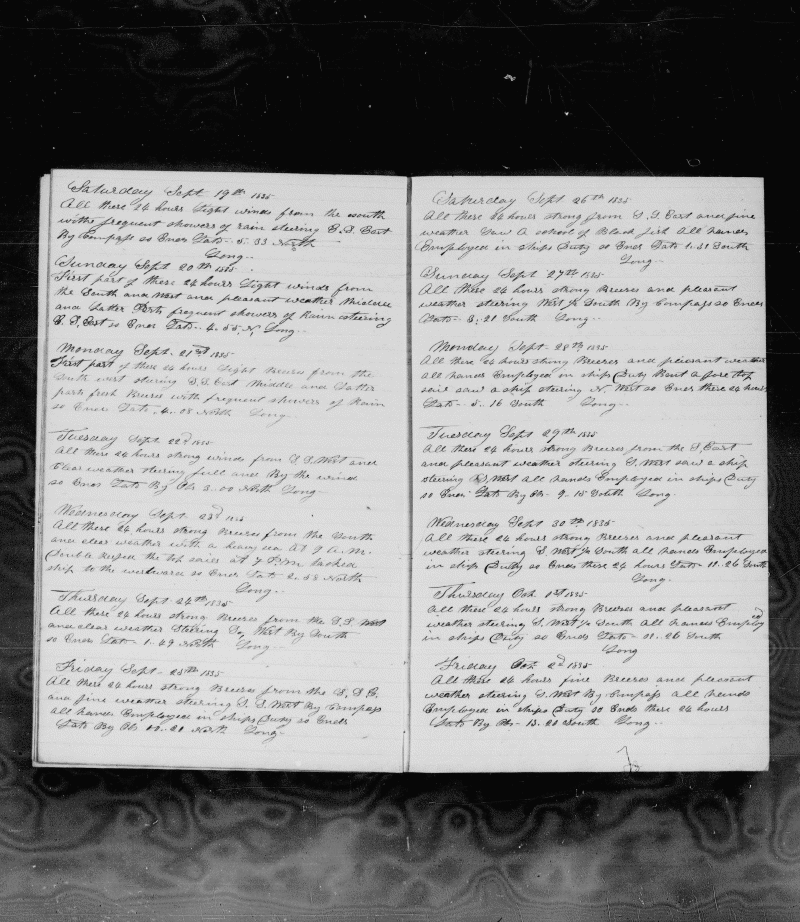 Saturday Sept 19th 1835
All these 24 hours Light winds from the South
withe frequent showers of rain steering S.S. East
By Compass so Ends Lato- 5. 33 North
Long..
Sunday Sept 20th 1835
First part of these 24 hours Light winds from
the South and West and pleasant weather Middle
and Latter Parts frequent showers of Rain steering
S.S.East so Ends Lato.. 4. 55 N. Long..
Monday Sept. 21st 1835
First part of these 24 hours Light Breeses from the
South west steering S.S. East Middle and Latter
parts fresh Breeses with frequent showers of Rain
so Ends Lato. 4..08 North Long..
Tuesday Sept. 22d 1835
All these 24 hours strong winds from S.S. West and
Clear weather steering full and By the wind
so Ends Lato By Ob 3..00 North Long..
Wednesday Sept. 23d 1835
All these 24 hours strong Breeses from the South
and clear weather with a heavy sea At 9 A.M.
Double reefed the top sailes at 7 P.M. tacked
ship to the westward so Ends Lato 2. 58 North
Long..
Thursday Sept 24th 1835
All these 24 hours strong Breeses from the S.S. West
and clear weather Steering West By South
so Ends Lato- 1-49 North Long..
Friday Sept- 25th 1835
All these 24 hours strong Breeses from the S, S E,
and fine weather steering S.S. West By Compass
All hands Employed in ships Duty so Ends
Lato By Ob. North Long..
Saturday Sept 26th 1835
All these 24 hours strong from S.S. East and fine
weather Saw A school of Black fish All hands
Employed in ships Duty so Ends Lato 1.31 South
Long..
Sunday Sept 27th 1835
All these 24 hours strong Breeses and pleasant
weather steering West ½ South By Compass so Ends
Lato- 3. 21 South Long..
Monday Sept- 28th 1835
All these 24 hours strong Breeses and pleasant weather
All hands Employed in ship Duty Bent A fore top
sail saw a ship steering N. West so Ends these 24 hours
Lato- 5.. 16 South Long..
Tuesday Sept 29th 1835
All these 24 hours strong Breeses from the S. East
and pleasant weather steering S. West saw a ship
steering West All hands Employed in ships Duty
so Ends Lato By Ob- 9. 15 South Long.
Wednesday Sept 30th 1835
All these 24 hours strong Breeses and pleasant
weather steering S. West ½ South all hands Employed
in ships Duty so Ends these 24 hours Lato- 11. 26 South
Long..
Thursday Oct. 1st 1835
All these 24 hours strong Breeses and pleasant
weather steering S. West ½ South All hands Employed
in ships Duty so Ends Lato- 26 South
Long
Friday Oct. 2d 1835
All these 24 hours fine Breeses and pleasant
weather steering S. West By Compass All hands
Employed in ships Duty so Ends these 24 hours
Lato By Ob- 13. 20 South Long..